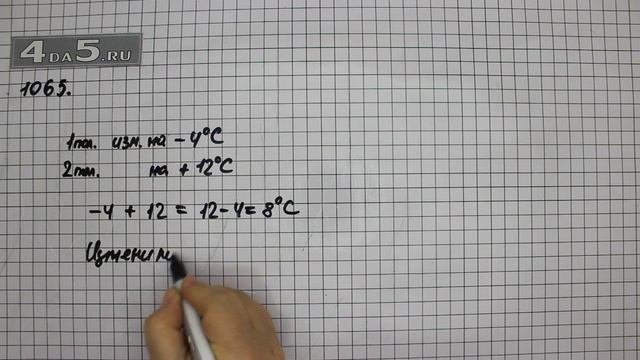 4DA5.RU
1065.
1пол. изм. на -4°C
2пол. на +12°C
-4 + 12 = 12-4= 8°C
Изменил